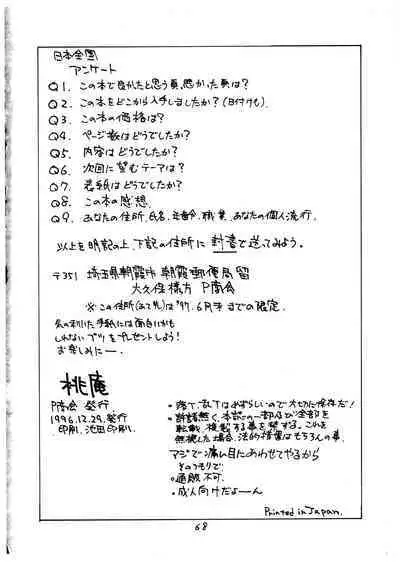 日本全国
アンケート
Q1. この本で良かったと思う頁、悪かった頁は?
Q2. この本をどこから入手しましたか?(日付も)
Q3. この本の価格は?
Q4. ページ数はどうでしたか?
Q5. 内容はどうでしたか?
Q6. 次回に望むテーマは?
Q7. 表紙はどうでしたか?
Q8. この本の感想
Q9. あなたの住所、氏名、年令、職業、あなたの個人流行。
以上を明記の上、下記の住所に封書で送ってみよう。
〒351 埼玉県朝霞市朝霞郵便局留
大久保様方 P商会
※この住所(あて先)は'97.6月末までの限定。
気の利いた手紙には面白いかも
しれないブツをプレゼントしよう!
お楽しみにー。
桃庵
P商会 発行
1996.12.29.発行
印刷、池田印刷.
・捨て るので大切に保存だ!
・許諾無く本誌の一部及び全部を
転載、複製する事を禁ずる。これを
無視した場合、法的措置はもちろんの事、
マジで痛い目にあわせてやるから
そのつもりで。
・通販不可.
・成人向けだよーん
Printed in Japan.
68